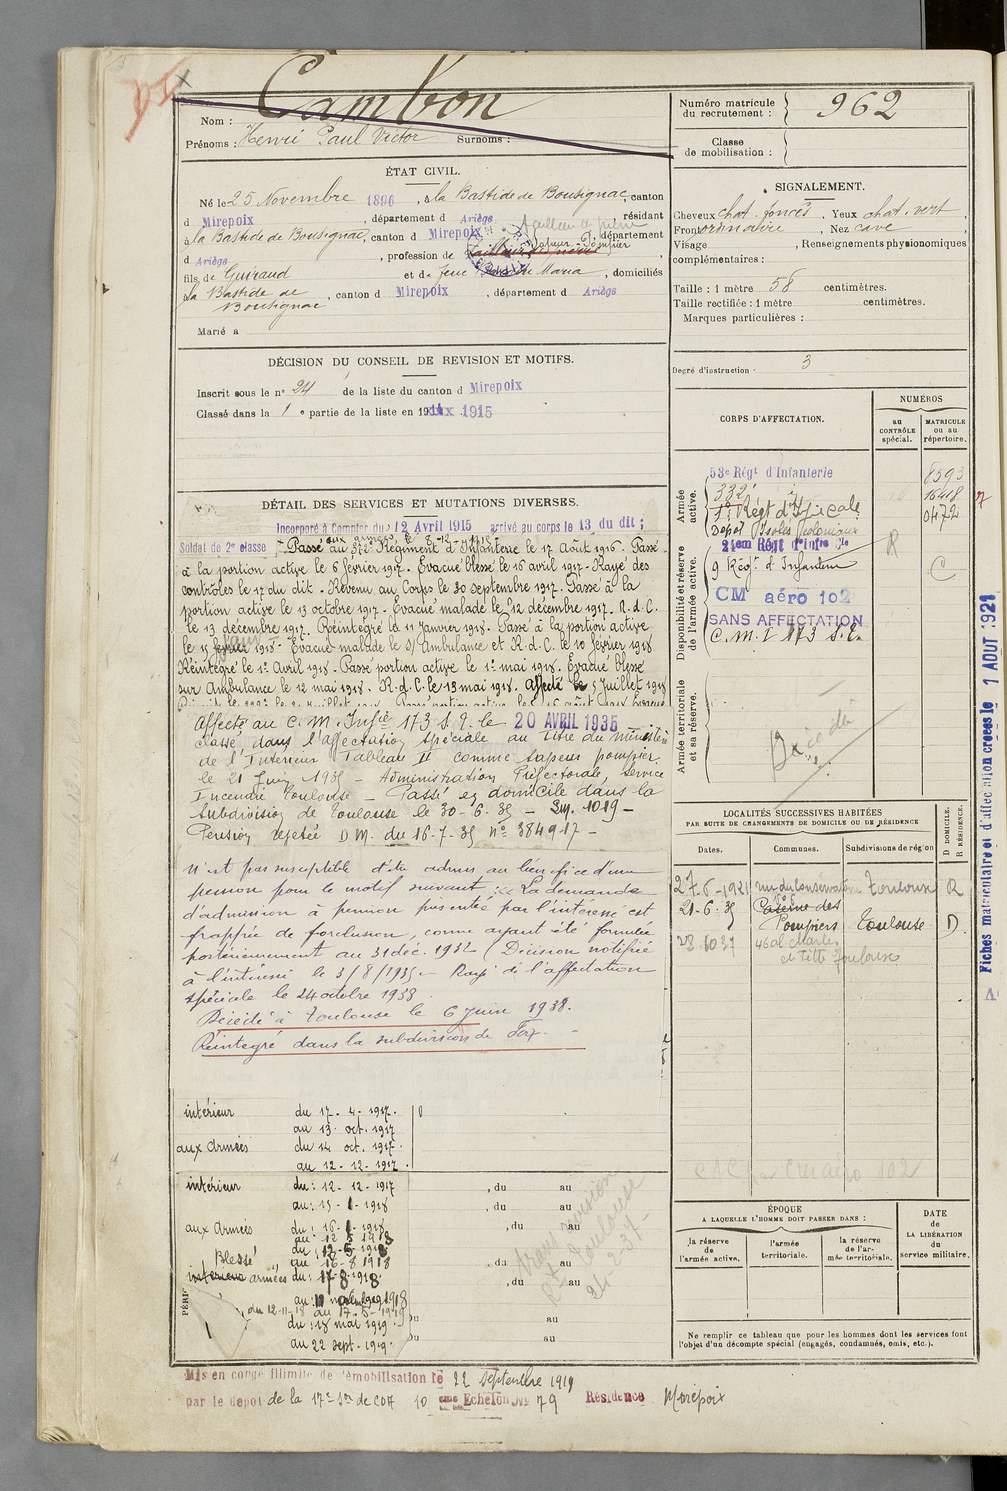 Cambon
Nom :
Prénoms : Henri Paul Victor Surnoms :
Numéro matricule du recrutement : 962
Classe de mobilisation :
ÉTAT CIVIL.
Né le 25 Novembre 1896, à la Bastide de Bousignac, canton
d Mirepoix, département d Ariège, résidant
à la Bastide de Bousignac, canton d Mirepoix, département
d Ariège, profession de
fils de Guiraud et de Maria, domiciliés
à La Bastide de Bousignac, canton d Mirepoix, département d Ariège
Marié à
SIGNALEMENT.
Cheveux chat. foncés, Yeux chat. vert
Front ordinaire, Nez cave
Visage , Renseignements physionomiques
complémentaires :
Taille : 1 mètre 58 centimètres.
Taille rectifiée : 1 mètre centimètres.
Marques particulières :
Degré d'instruction : 3
DÉCISION DU CONSEIL DE REVISION ET MOTIFS.
Inscrit sous le n° 24 de la liste du canton d Mirepoix
Classé dans la 1e partie de la liste en 1915
DÉTAIL DES SERVICES ET MUTATIONS DIVERSES.
Incorporé à Compter du 12 Avril 1915 arrivé au corps le 13 du dit ;
Soldat de 2e classe Passé au Régiment d'Infanterie le 17 Août 1916. Passé
à la portion active le 6 février 1917. Evacué blessé le 16 avril 1917. Rayé des
contrôles le 17 du dit. Revenu au Corps le 30 septembre 1917. Passé à la
portion active le 13 octobre 1917. Evacué malade le 12 décembre 1917. R.d.C.
le 13 décembre 1917. Réintégré le 11 Janvier 1918. Passé à la portion active
le 15 1918. Evacué malade le 9/ Ambulance et R.d.C. le 10 février 1918
Réintégré le 1er Avril 1918. Passé portion active le 1er mai 1918. Evacué blessé
sur Ambulance le 12 mai 1918. R.d.C. le 13 mai 1918. Affecté le 5 Juillet 1918
Affecté au C.M. Infie 173 S.E. le 20 AVRIL 1935
Classé dans l'affectation spéciale au titre du ministère
de l'Intérieur Tableau II comme Sapeur pompier
le 21 Juin 1935 - Administration Préfectorale, Service
Incendie Toulouse - Passé en domicile dans la
Subdivision de Toulouse le 30-6-35 - 1019 -
Pension rejetée D.M. du 16-7-35 N° 384917 -
n'est pas susceptible d'être admis au bénéfice d'une
pension pour le motif suivant : "La demande
d'admission à pension présentée par l'intéressé est
frappée de forclusion, comme ayant été formulée
postérieurement au 31 déc. 1932 (Décision notifiée
à l'intéressé le 3/8/1935 - Rayé de l'affectation
spéciale le 24 octobre 1938
Décédé à Toulouse le 6 Juin 1938.
Réintegré dans la subdivision de Foix. -
CORPS D'AFFECTATION.
NUMÉROS
au CONTRÔLE spécial.
MATRICULE ou au répertoire.
Armée active.
53e Régt d'Infanterie 8593
332e
0472
Dépôt Isolés Coloniaux
Disponibilité et réserve de l'armée active.
24em Régt d'Infie Cle
9 Régt d'Infanterie
CM aéro 102
SANS AFFECTATION
C.M.I 173 S.E.
Armée territoriale et sa réserve.
Décédé
LOCALITÉS SUCCESSIVES HABITÉES
PAR SUITE DE CHANGEMENTS DE DOMICILE OU DE RÉSIDENCE
Dates. Communes. Subdivisions de région D DOMICILE. R RÉSIDENCE.
27-6-1921 Toulouse R
21-6-35 Caserne des Pompiers Toulouse D
46 al Charles de Fitte Toulouse
Fiches matriculaire et d'affectation créées le 1 AOUT 1921
intérieur du 17-4-1917.
au 13 oct. 1917
aux armées du 14 oct. 1917.
au 12-12-1917.
intérieur du : 12-12-1917
au : 15-1-1918
aux Armées du : 16-1-1918
au 12 5 1918
Blessé du : 12-5-1918
au 16-8 1918
armées du : 17-8-1918
du 12-11-18 au 17-5-1919
du : 18 mai 1919
au 22 sept. 1919.
, du au
, du au
, du au
, du au
, du au
du au
du au
trans pension
Rt Toulouse
24-2-37
ÉPOQUE
A LAQUELLE L'HOMME DOIT PASSER DANS :
la réserve de l'armée active.
l'armée territoriale.
la réserve de l'armée territoriale.
DATE de LA LIBÉRATION du service militaire.
Ne remplir ce tableau que pour les hommes dont les services font
l'objet d'un décompte spécial (engagés, condamnés, omis, etc.).
Mis en congé illimité de démobilisation le 22 Septembre 1919
par le dépôt de la 17e Son de COA 10 eme Echelon No 79 Résidence Mirepoix